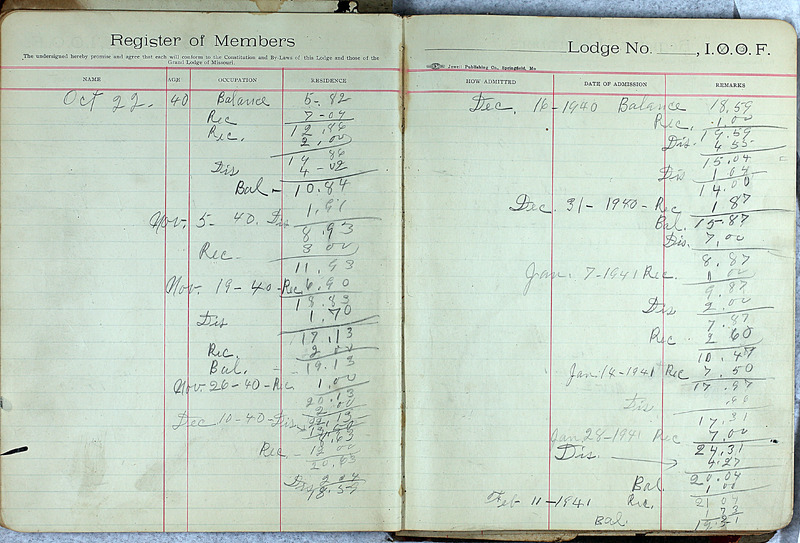 Register of Members
The undersigned hereby promise and agree that each will conform to the Constitution and By-Laws of this Lodge and those of the
Grand Lodge of Missouri.
NAME AGE OCCUPATION RESIDENCE
Oct 22. 40 Balance 5.82
Rec 7-04
12.86
Rec. 2.00
14 86
Dis 4-02
Bal - 10.84
1.91
Nov. 5- 40. Dis
8.93
Rec. 3 00
11.93
Nov. 19-40-Rec 6.90
18.83
Dis 1.70
17.13
Rec. 2 00
Bal. - 19.13
Nov-26-40-Rec 1.00
20.13
2 00
Dec 10-40-Dis 22.13
13.50
8.63
Rec - 12 00
20.63
Dis 2 04
18.59
Lodge No. , I.O.O.F.
Jewell Publishing Co., Springfield, Mo
HOW ADMITTED DATE OF ADMISSION REMARKS
Dec. 16-1940 Balance 18.59
Rec. 1.00
19.59
Dis. 4 55
15.04
Dis 1 04
14.00
Dec. 31- 1940- Rec 1 87
Bal. 15.87
Dis. 7.00
8.87
Jan. 7-1941 Rec. 1 00
9.87
Dis 2.00
7.87
Rec 2 60
10.47
Jan-14-1941 Rec 7.50
17.97
Dis
17.31
Jan 28-1941 Rec 7.00
24.31
Dis. 4.27
Bal 20.04
1 00
Feb 11-1941 Rec. 21 04
1 73
Bal.